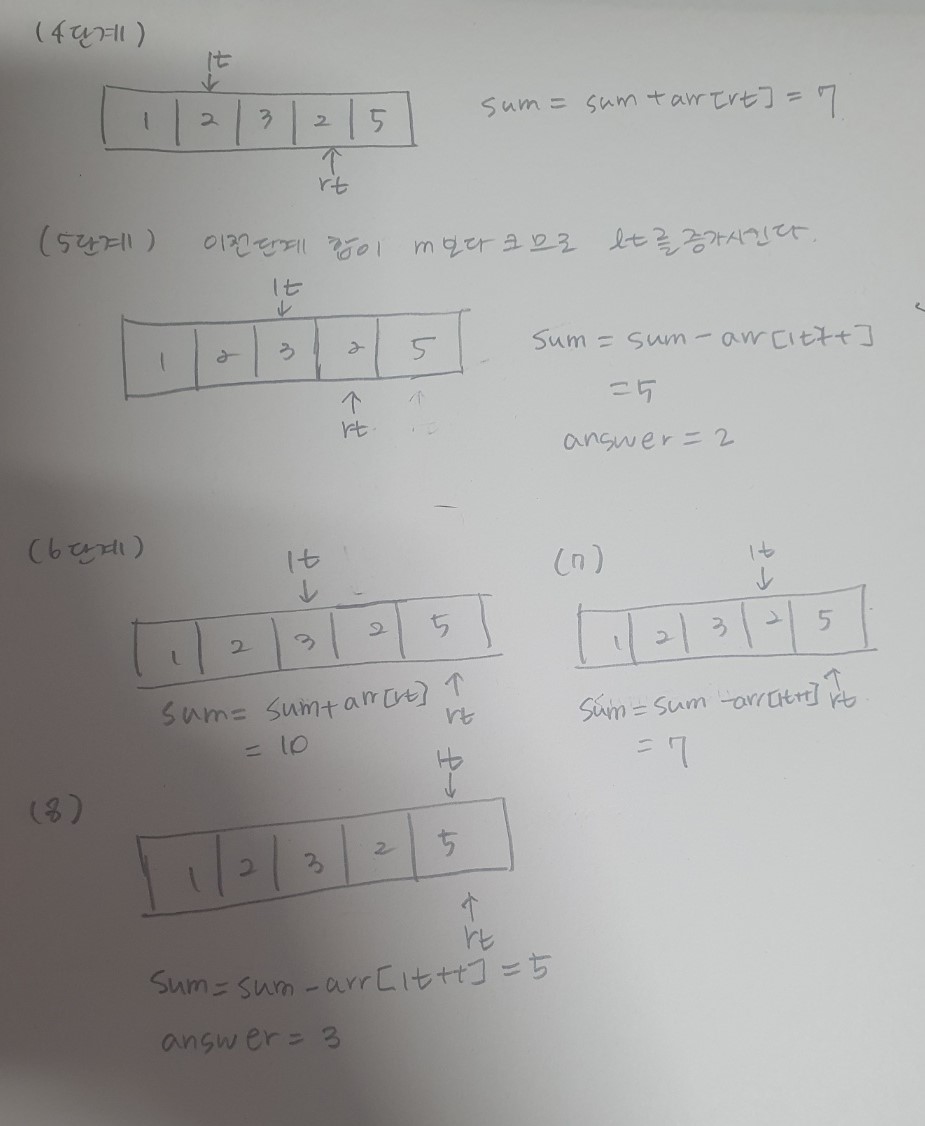 (4단계)
lt
↓
1 2 3 2 5
↑
rt
sum = sum + arr[rt] = 7
(5단계) 이전단계 합이 m보다 크므로 lt를 증가시킨다.
lt
↓
1 2 3 2 5
↑
rt
sum = sum - arr[lt++]
= 5
answer = 2
(6단계)
lt
↓
1 2 3 2 5
↑
rt
sum = sum + arr[rt]
= 10
(7)
lt
↓
1 2 3 2 5
↑
rt
sum = sum - arr[lt++]
= 7
(8)
lt
↓
1 2 3 2 5
↑
rt
sum = sum - arr[lt++] = 5
answer = 3